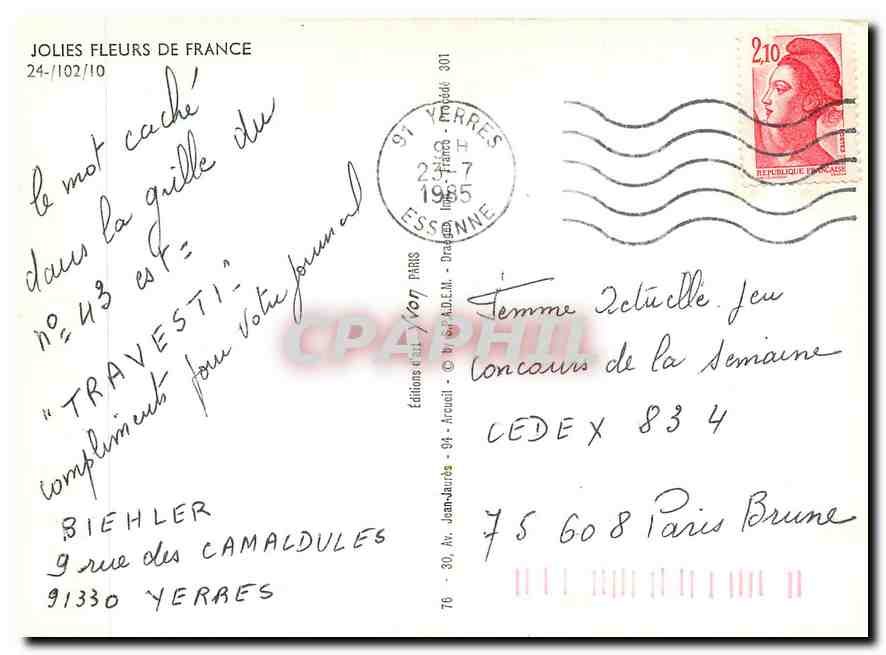 JOLIES FLEURS DE FRANCE
24-/102/10
le mot caché
dans la grille du
n°= 43 est=
"TRAVESTI"-
compliments pour votre journal
BIEHLER
9 rue des CAMALDULES
91330 YERRES
Éditions d'art Yvon PARIS
76 - 30, Av. Jean-Jaurès - 94 - Arcueil - © by S.P.A.D.E.M. - Draeger, Imp. France - Procédé 301
91 YERRES
23-7
1985
ESSONNE
2,10
POSTES
REPUBLIQUE FRANÇAISE
Femme Actuelle. Jeu
Concours de la Semaine
CEDEX 834
75 608 Paris Brune
CPAPHIL